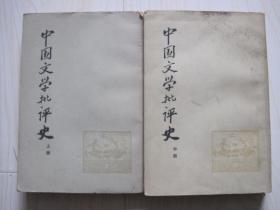 中国文学批评史
上册
中国文学批评史
中册